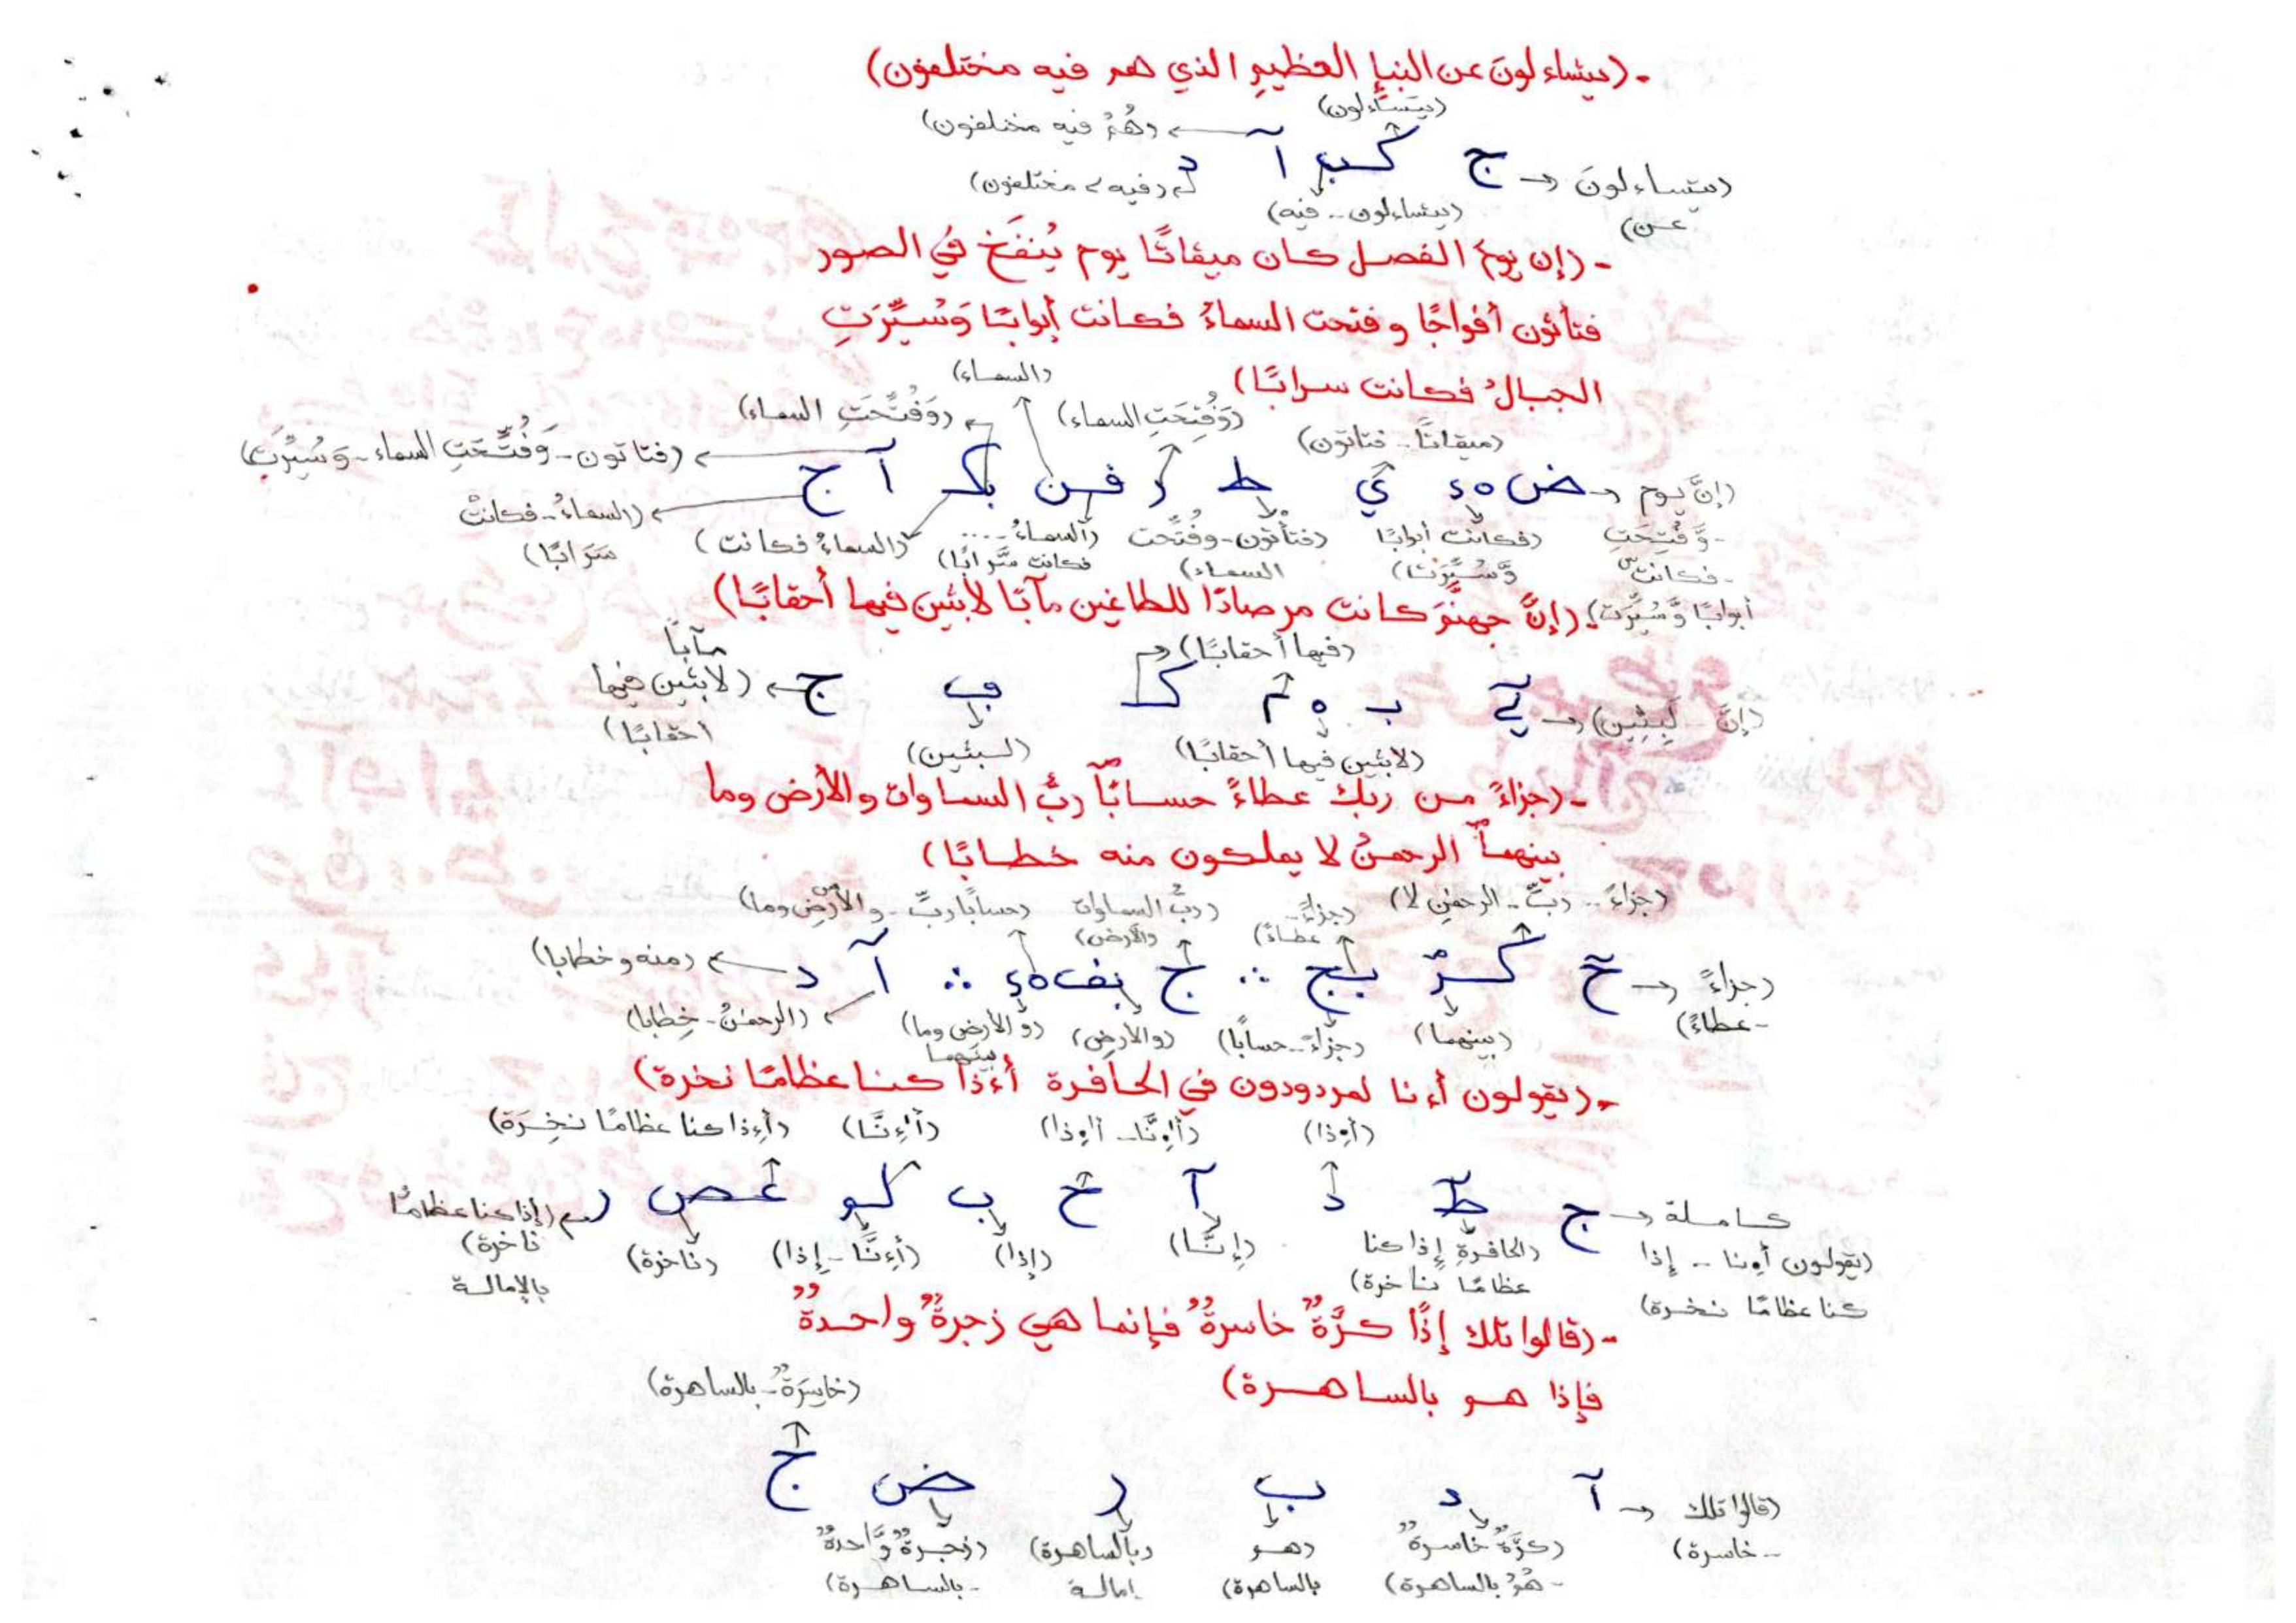 - (يتساءلون عن النبإ العظيم الذي هم فيه مختلفون)
(يتساءلون)
(هُمُ فيه مختلفون)
(يتساءلون ج ک ب آ د
عن)
(يتساءلون - فيه)
(فيه مختلفون)
- (إن يومَ الفصل كان ميقاتًا يوم يُنفَخ في الصور
فتأتون أفواجًا وفتحت السماءُ فكانت أبوابًا وَسُيِّرَتِ
الجبالُ فكانت سرابًا)
(السماء)
(وَفُتِّحَتِ السماء) (وَفُتِحَتِ السماء) (ميقاتًا - فتاتون)
(فتاتون - وَفُتِّحَتِ السماء - وَسُيِّرَت)
(إنَّ يوم ض ي ط ر فن بك آ ج
(السماءُ - فكانتْ
سَرَابًا)
- وَّفُتِحَتِ (فكانت أبوابًا (فتأتون - وفُتِّحت (السماءُ .... (السماءُ فكانت)
- فكانت وَّسُيِّرَت) السماء) فكانت سَّرابًا)
أبوابًا وَّسُيِّرَت)
(إنَّ جهنَّمَ كانت مرصادًا للطاغين مآبًا لابثين فيها أحقابًا)
(فيها أحقابًا)
مآباً
(إنَّ - لَبِثِين) ب م ك ب ج (لابثين فيها
أحقابًا)
(لابثين فيها أحقابًا) (لبثين)
- (جزاءً من ربك عطاءً حسابًا ربُّ السماوات والأرض وما
بينهما الرحمنُ لا يملكون منه خطابًا)
(جزاءً - ربِّ - الرحمنِ لا) (جزاءً - عطاءً) (ربُّ السماوات والأرض) (حسابًا ربِّ - والأرض وما)
(جزاءً ج ∴ ج ∴ آ د (منه و خطابا)
- عطاءً)
(بينهما) (جزاءً - حسابًا) (والأرض) (والأرض وما بينهما (الرحمنُ - خِطابا)
- (يقولون أءنا لمردودون في الحافرة أءذا كنا عظامًا نخرة)
(أءذا) (أإنَّا - أإذا) (أإنَّا) (أءذا كنا عظامًا نخِرَة)
كاملة ج ط د آ ح ب غص ر (إذا كنا عظامًا
ناخرة)
بالإمالة
(يقولون أءنا - إذا
كنا عظامًا نخرة)
(الحافرةِ إذا كنا (إنَّا) (إذا) (أءنَّا - إذا) (ناخرة)
عظامًا ناخرة)
- (قالوا تلك إذًا كرَّةٌ خاسرةٌ فإنما هي زجرةٌ واحدةٌ
فإذا هم بالساهرة)
(خاسِرَةٌ - بالساهرة)
(قالوا تلك آ د ب ر ض ج
- خاسرة)
(كرَّةٌ خاسرةٌ (هم (بالساهرة) (زجرةٌ وَّاحدةٌ
- هُمُ بالساهرة) بالساهرة) إمالة - بالساهرة)